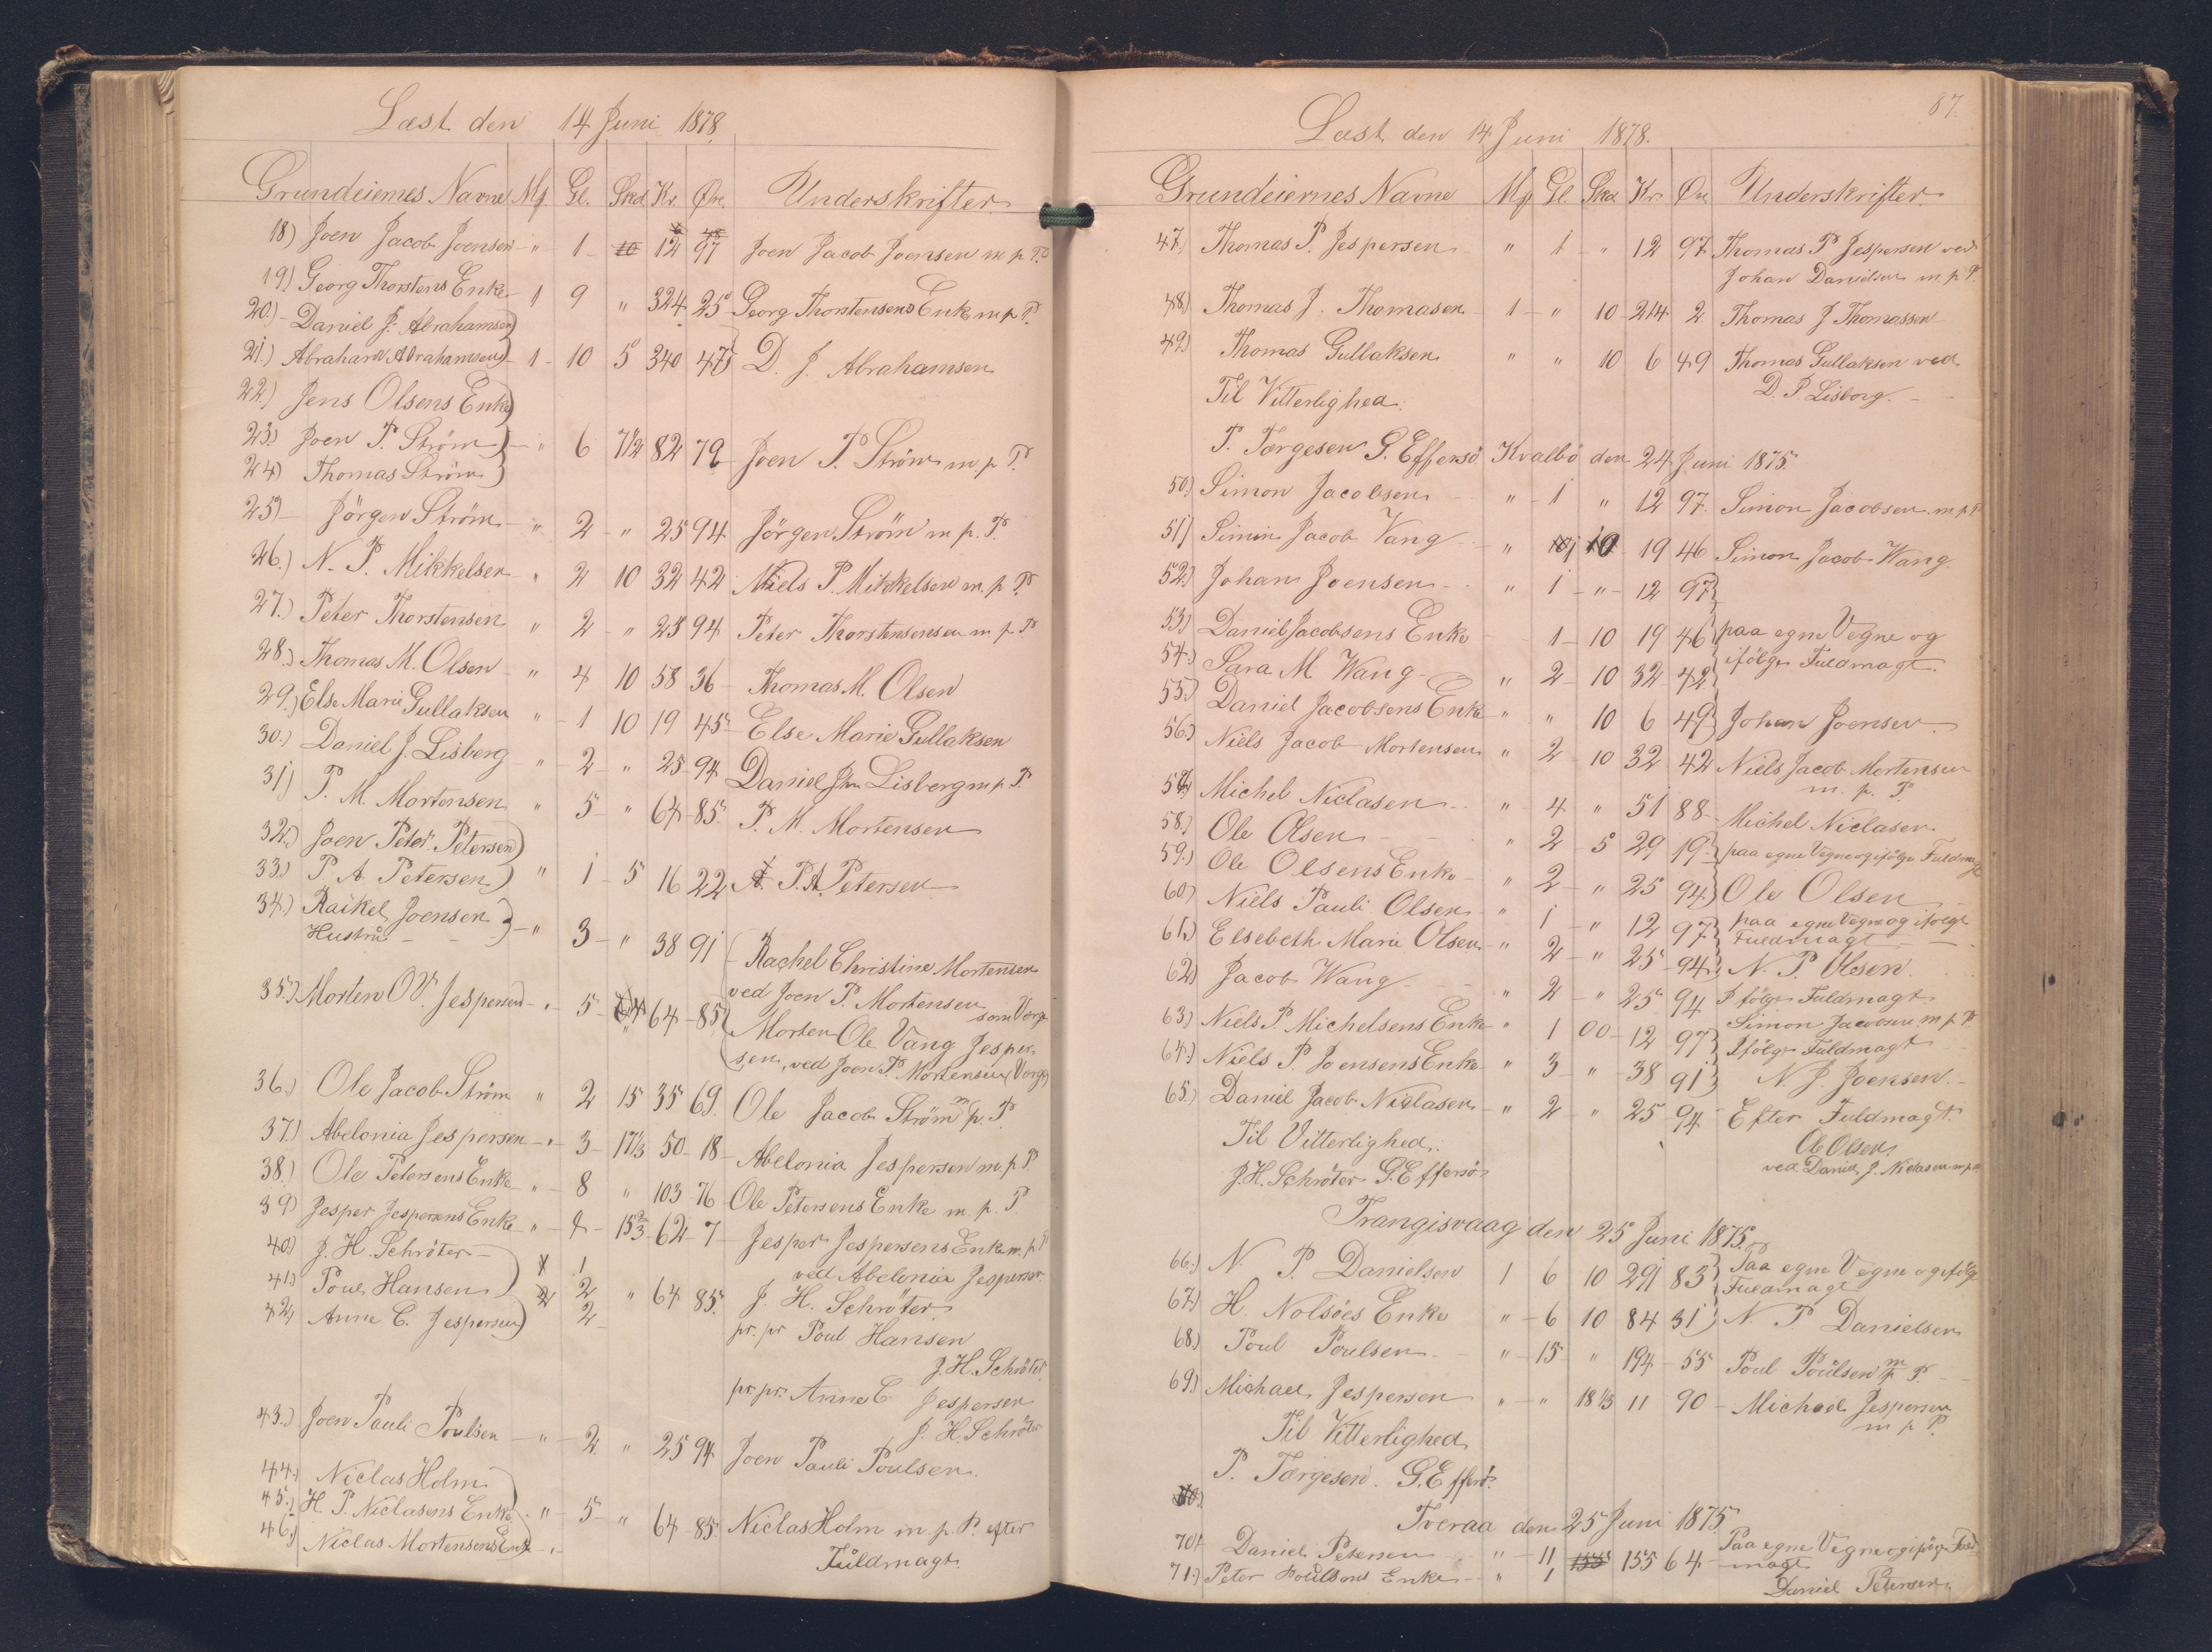 Læst den 14 Juni 1878.
Grundeiernes Navne Mf. Gl. Skd. Kr. Øre. Underskrifter.
18) Joen Jacob Joensen " 1 10 12 97 Joen Jacob Joensen m p P.
19) Georg Thorstens Enke 1 9 " 324 25 Georg Thorstensens Enke m p P.
20.) Daniel J. Abrahamsen
21.) Abraham Abrahamsen 1 10 5 340 47 D. J. Abrahamsen
22.) Jens Olsens Enke
23.) Joen P. Ström " 6 7 1/2 82 79 Joen P. Ström m p P.
24) Thomas Ström
25) Jörgen Ström " 2 " 25 94 Jörgen Ström m p. P.
26.) N. P. Mikkelsen " 2 10 32 42 Niels P. Mikkelsen m. p P.
27.) Peter Thorstensen " 2 " 25 94 Peter Thorstensensen m p P
28.) Thomas M. Olsen " 4 10 58 36 Thomas M. Olsen
29.) Else Marie Gullaksen " 1 10 19 45 Else Marie Gullaksen
30.) Daniel J. Lisberg " 2 " 25 94 Daniel Lisberg m p P.
31) P. M. Mortensen " 5 " 64 85. P. M. Mortensen
32.) Joen Peter Petersen
33.) P. A. Petersen " 1 5 16 22 P. A. Petersen
34.) Raikel Joensen " 3 " 38 91 Rachel Christine Mortensen
Hustru
ved Joen P. Mortensen som Værge
35.) Morten O V. Jespersen " 5 " 64 85 Morten Ole Vang Jesper-
sen, ved Joen P. Mortensen (Værge)
36.) Ole Jacob Ström " 2 15 35 69. Ole Jacob Ström m p. P.
37.) Abelonia Jespersen " 3 17 1/3 50 18 Abelonia Jespersen m. p P.
38.) Ole Petersens Enke " 8 " 103 76 Ole Petersens Enke m. p. P.
39) Jesper Jespersens Enke " 4 15 2/3 62 7 Jesper Jespersens Enke m. p P
ved Abelonia Jespersen
40.) J. H. Schröter 1
41.) Poul Hansen 2 " 64 85. J. H. Schröter
42) Anne C. Jespersen 2
pr. pr Poul Hansen
J. H. Schröter
pr. pr. Anne C. Jespersen
J. H. Schröter
43.) Joen Pauli Poulsen " 2 " 25 94 Joen Pauli Poulsen.
44.) Niclas Holm
45.) H. P. Niclasens Enke " 5 " 64 85. Niclas Holm m. p. P. efter
46.) Niclas Mortensens Enke
Fuldmagt.
87.
Læst den 14 Juni 1878.
Grundeiernes Navne Mf Gl. Skd. Kr. Øre Underskrifter.
47.) Thomas P. Jespersen " 1 " 12 97 Thomas P Jespersen ved
Johan Danielsen m. p P.
48.) Thomas J. Thomasen 1 " 10 214 2. Thomas J Thomassen
49.) Thomas Gullaksen " " 10 6 49 Thomas Gullaksen ved
D. P. Lisberg.
Til Vitterlighed.
P. Tørgesen G. Effersö Kvalbö den 24 Juni 1875.
50.) Simon Jacobsen " 1 " 12 97. Simon Jacobsen m. p P
51) Simin Jacob Vang " 1 10 19 46 Simon Jacob Wang.
52.) Johan Joensen " 1 " 12 97
53.) Daniel Jacobsens Enke 1 10 19 46 paa egne Vegne og
ifölge Fuldmagt.
54.) Sara M Wang " 2 10 32 42
55.) Daniel Jacobsens Enke " " 10 6 49 Johan Joensen.
56.) Niels Jacob Mortensen " 2 10 32 42 Niels Jacob Mortensen
m. p. P.
57.) Michel Niclasen " 4 " 51 88 Michel Niclasen
58.) Ole Olsen " 2 5 29 19 paa egne Vegne og ifölge Fuldmagt
59.) Ole Olsens Enke " 2 " 25 94 Ole Olsen
60) Niels Pauli Olsen " 1 " 12 97 paa egne Vegne og ifolge
Fuldmagt
61.) Elsebeth Marie Olsen " 2 " 25 94 N. P. Olsen.
62.) Jacob Wang " 2 " 25 94 Ifölge Fuldmagt
Simon Jacobsen m p P.
63.) Niels P. Michelsens Enke " 1 00 12 97 Ifölge Fuldmagt
64.) Niels P. Joensens Enke " 3 " 38 91 N. J. Joensen.
65.) Daniel Jacob Niclasen " 2 " 25 94 Efter Fuldmagt
Ole Olsen
ved Daniel J. Niclasen m p
Til Vitterlighed.
J. H. Schröter G. Effersö
Trangisvaag den 25 Juni 1875.
66.) N. P. Danielsen 1 6 10 291 83 Paa egne Vegne og ifölge
Fuldmagt
67.) H. Nolsöes Enke " 6 10 84 31 N. P Danielsen
68.) Poul Poulsen " 15 " 194 55 Poul Poulsen m p P
69.) Michael Jespersen " " 18 1/3 11 90 Michael Jespersen
m p P.
Til Vitterlighed
P. Tørgesen. G. Effersö.
Tveraa den 25 Juni 1875.
70.) Daniel Petersen " 11 155 64 Paa egne Vegne og ifölge Fuld-
magt
71.) Peter Poulsens Enke " 1
Daniel Petersen